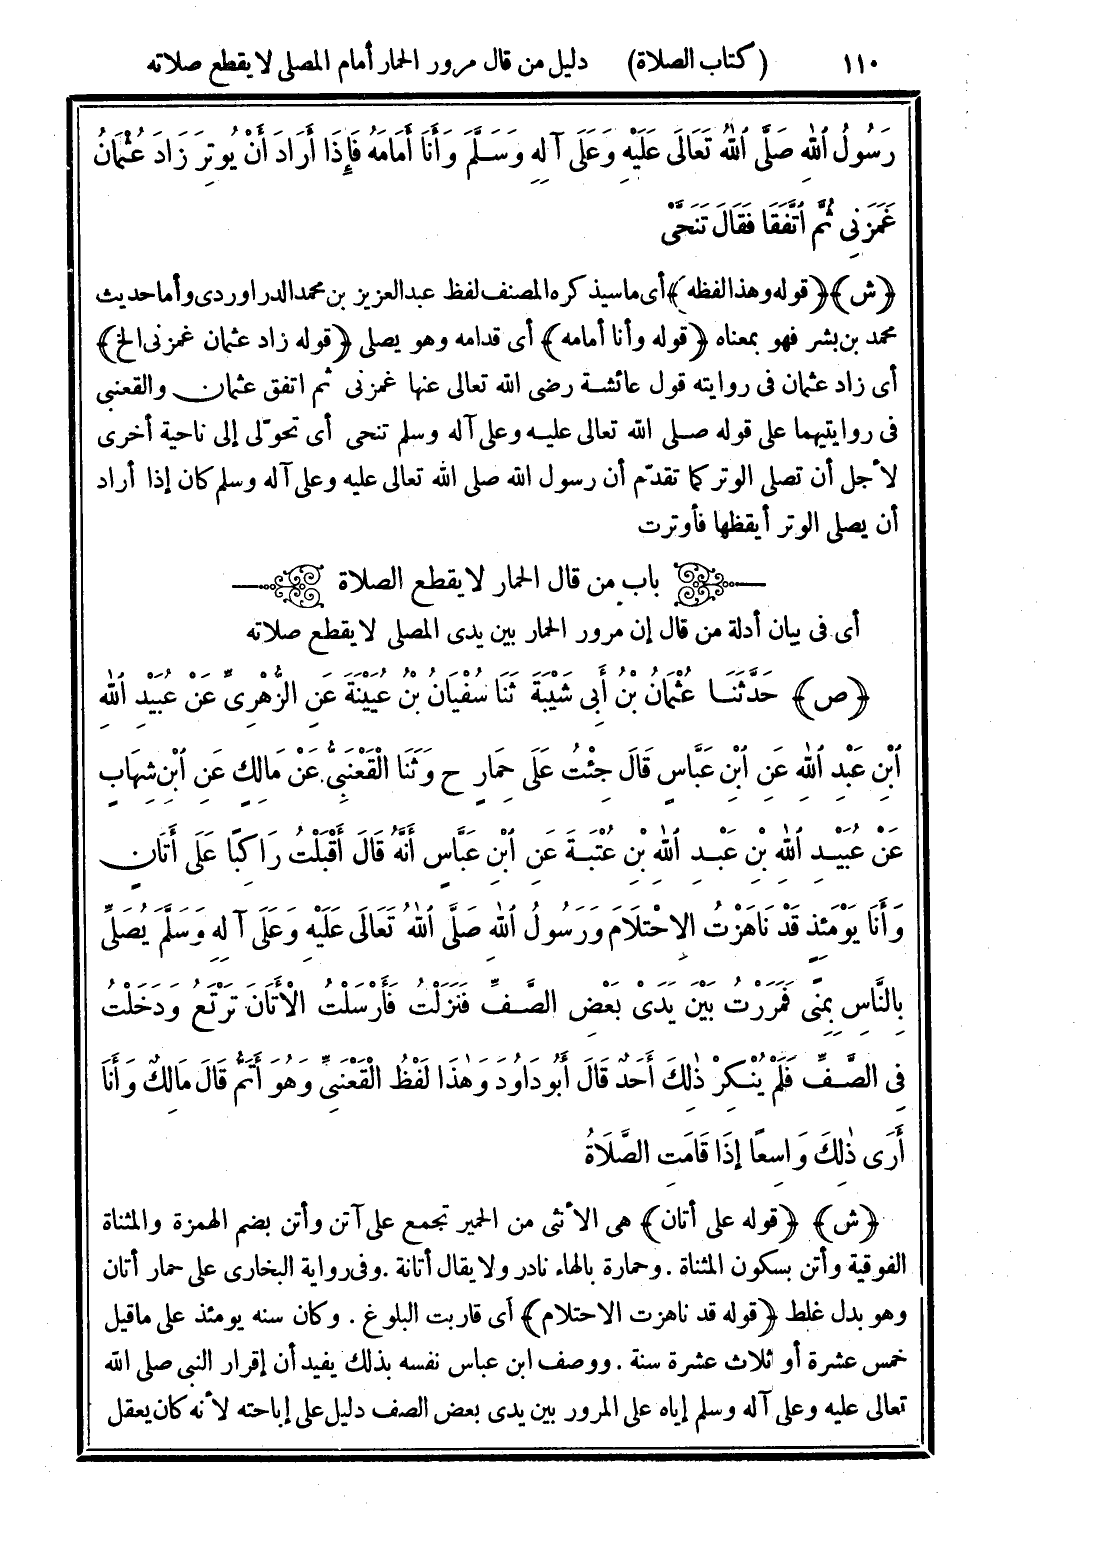 ١١٠ (كتاب الصلاة) دليل من قال مرور الحمار أمام المصلى لا يقطع صلاته
رَسُولُ ٱللهِ صَلَّى ٱللهُ تَعَالَى عَلَيْهِ وَعَلَى آلِهِ وَسَلَّمَ وَأَنَا أَمَامَهُ فَإِذَا أَرَادَ أَنْ يُوتِرَ زَادَ عُثْمَانُ
غَمَزَنِى ثُمَّ ٱتَّفَقَا فَقَالَ تَنَحَّىْ
﴿ش﴾ ﴿قوله وهذا لفظه﴾ أى ما سيذكره المصنف لفظ عبد العزيز بن محمد الدراوردى وأما حديث
محمد بن بشر فهو بمعناه ﴿قوله وأنا أمامه﴾ أى قدامه وهو يصلى ﴿قوله زاد عثمان غمزنى الخ﴾
أى زاد عثمان فى روايته قول عائشة رضى الله تعالى عنها غمزنى ثم اتفق عثمان والقعنبى
فى روايتيهما على قوله صلى الله تعالى عليه وعلى آله وسلم تنحى أى تحوّلى إلى ناحية أخرى
لأجل أن تصلى الوتر كما تقدّم أن رسول الله صلى الله تعالى عليه وعلى آله وسلم كان إذا أراد
أن يصلى الوتر أيقظها فأوترت
باب من قال الحمار لا يقطع الصلاة
أى فى بيان أدلة من قال إن مرور الحمار بين يدى المصلى لا يقطع صلاته
﴿ص﴾ حَدَّثَنَا عُثْمَانُ بْنُ أَبِى شَيْبَةَ ثَنَا سُفْيَانُ بْنُ عُيَيْنَةَ عَنِ الزُّهْرِىِّ عَنْ عُبَيْدِ ٱللهِ
ٱبْنِ عَبْدِ ٱللهِ عَنِ ٱبْنِ عَبَّاسٍ قَالَ جِئْتُ عَلَى حِمَارٍ ح وَثَنَا الْقَعْنَبِىُّ عَنْ مَالِكٍ عَنِ ٱبْنِ شِهَابٍ
عَنْ عُبَيْدِ ٱللهِ بْنِ عَبْدِ ٱللهِ بْنِ عُتْبَةَ عَنِ ٱبْنِ عَبَّاسٍ أَنَّهُ قَالَ أَقْبَلْتُ رَاكِبًا عَلَى أَتَانٍ
وَأَنَا يَوْمَئِذٍ قَدْ نَاهَزْتُ الِاحْتِلَامَ وَرَسُولُ ٱللهِ صَلَّى ٱللهُ تَعَالَى عَلَيْهِ وَعَلَى آلِهِ وَسَلَّمَ يُصَلِّى
بِالنَّاسِ بِمِنًى فَمَرَرْتُ بَيْنَ يَدَىْ بَعْضِ الصَّفِّ فَنَزَلْتُ فَأَرْسَلْتُ الْأَتَانَ تَرْتَعُ وَدَخَلْتُ
فِى الصَّفِّ فَلَمْ يُنْكِرْ ذٰلِكَ أَحَدٌ قَالَ أَبُو دَاوُدَ وَهٰذَا لَفْظُ الْقَعْنَبِىِّ وَهُوَ أَتَمُّ قَالَ مَالِكٌ وَأَنَا
أَرَى ذٰلِكَ وَاسِعًا إِذَا قَامَتِ الصَّلَاةُ
﴿ش﴾ ﴿قوله على أتان﴾ هى الأنثى من الحمير تجمع على آتن وأتن بضم الهمزة والمثناة
الفوقية وأتن بسكون المثناة . وحمارة بالهاء نادر ولا يقال أتانة . وفى رواية البخارى على حمار أتان
وهو بدل غلط ﴿قوله قد ناهزت الاحتلام﴾ أى قاربت البلوغ . وكان سنه يومئذ على ماقيل
خمس عشرة أو ثلاث عشرة سنة . ووصف ابن عباس نفسه بذلك يفيد أن إقرار النبى صلى الله
تعالى عليه وعلى آله وسلم إياه على المرور بين يدى بعض الصف دليل على إباحته لأنه كان يعقل